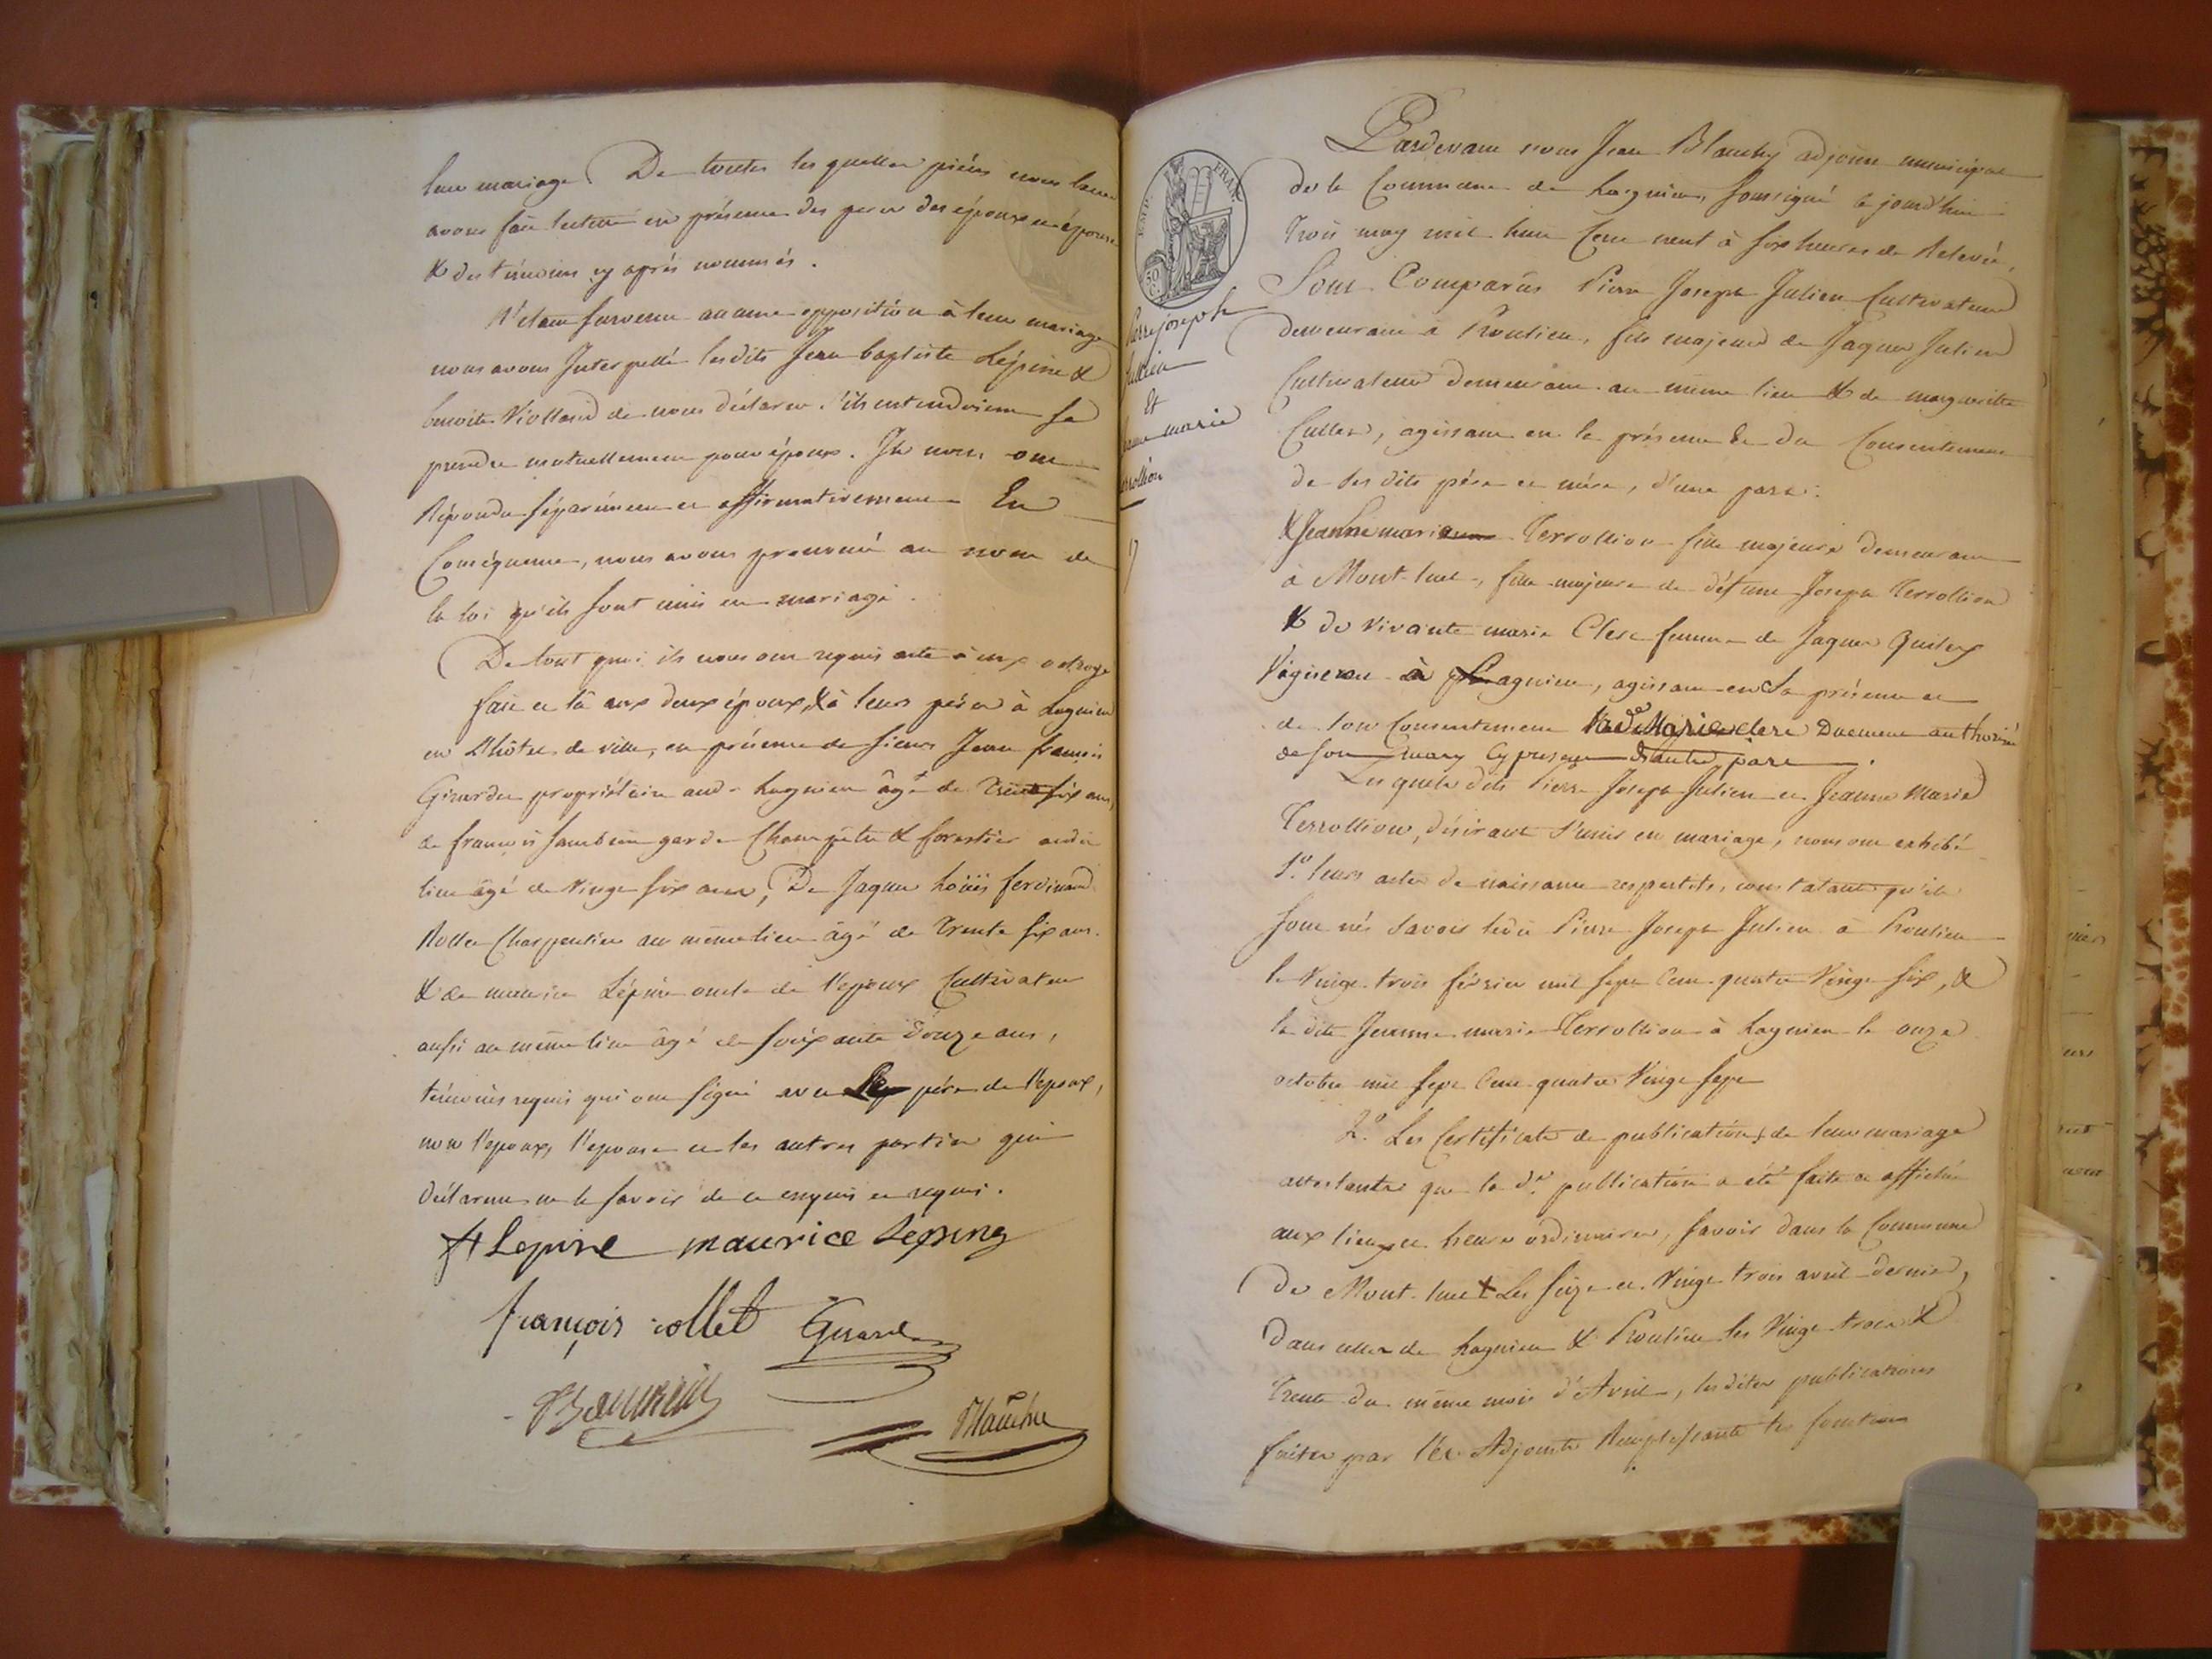 leur mariage. De toutes les quelles pièces nous leur
avons fait lecture en présence des peres des époux et épouse
& des témoins cy après nommés.
N'etant survenu aucune opposition à leur mariage
nous avons Interpellé lesdits Jean baptiste Lépine &
benoite Viollard de nous déclarer s'ils entendoient se
prendre mutuellement pour époux. Ils nous ont
Répondu séparément et affirmativement En
Conséquence, nous avons prononcé au nom de
la loi qu'ils sont unis en mariage.
De tout quoi ils nous ont requis acte à eux octroyé
fait et lû aux deux époux, & à leurs pères à Lagnieu
en L'hôtel de ville, en présence de sieurs Jean françois
Girardet propriétaire aud. Lagnieu âgé de trente six ans,
de françois garde Champêtre & forestier audit
lieu âgé de Vingt six ans, De Jaques Loüis ferdinand
Rollet Charpentier au même lieu âgé de Trente six ans.
& de maurice Lépine oncle de l'epoux Cultivateur
aussi au même lieu âgé de soixante douze ans,
témoins requis qui ont signé avec le père de l'epoux,
non l'epoux, l'epouse et les autres parties qui
déclarent ne le savoir de ce enquis et requis.
Lepine maurice Lepine
françois rollet Girardet
Blanchy
EMP. FRAN.
50 C.
Pierre joseph
Julien
Et
Jeanne marie
Terrollion
17
Pardevant nous Jean Blanchy adjoint municipal
de la Commune de Lagnieu, soussigné ce jourd'hui
Trois may mil huit Cent neuf à six heures de Relevée,
Sont Comparûs Pierre Joseph Julien Cultivateur
demeurant à Proulieu, fils majeur de Jaques Julien
Cultivateur demeurant au même lieu & de marguerite
Cullet, agissant en la présence & du Consentement
de ses dits père et mère, d'une part.
& Jeanne marie Terrollion fille majeure demeurant
à Mont-luel, fille majeure de défunt Joseph Terrollion
& de vivante marie Clerc femme de Jaques Quileux
Vigneron à Lagnieu, agissant en Sa présence et
de son Consentement lad.e Marie clerc Duement authorisée
de son mary Cy present D'autre part.
Les quels dits Pierre Joseph Julien et Jeanne Marie
Terrollion, désirant s'unir en mariage, nous ont exhibé
1.º leurs actes de naissance respectifs, constatant qu'ils
sont nés Savoir ledit Pierre Joseph Julien à Proulieu
le Vingt trois février mil sept Cent quatre Vingt six, &
la dite Jeanne marie Terrollion à Lagnieu le onze
octobre mil sept Cent quatre Vingt sept
2.º Les Certificats de publications de leur mariage
attestants que la d.e publication a été faite et affichée
aux lieux et heures ordinaires, Savoir dans la Commune
de Mont-luel Les seize et Vingt trois avril dernier,
Dans celles de Lagnieu & Proulieu les Vingt trois &
Trente du même mois d'Avril, lesdites publications
faites par les Adjoints Remplissants les fonctions